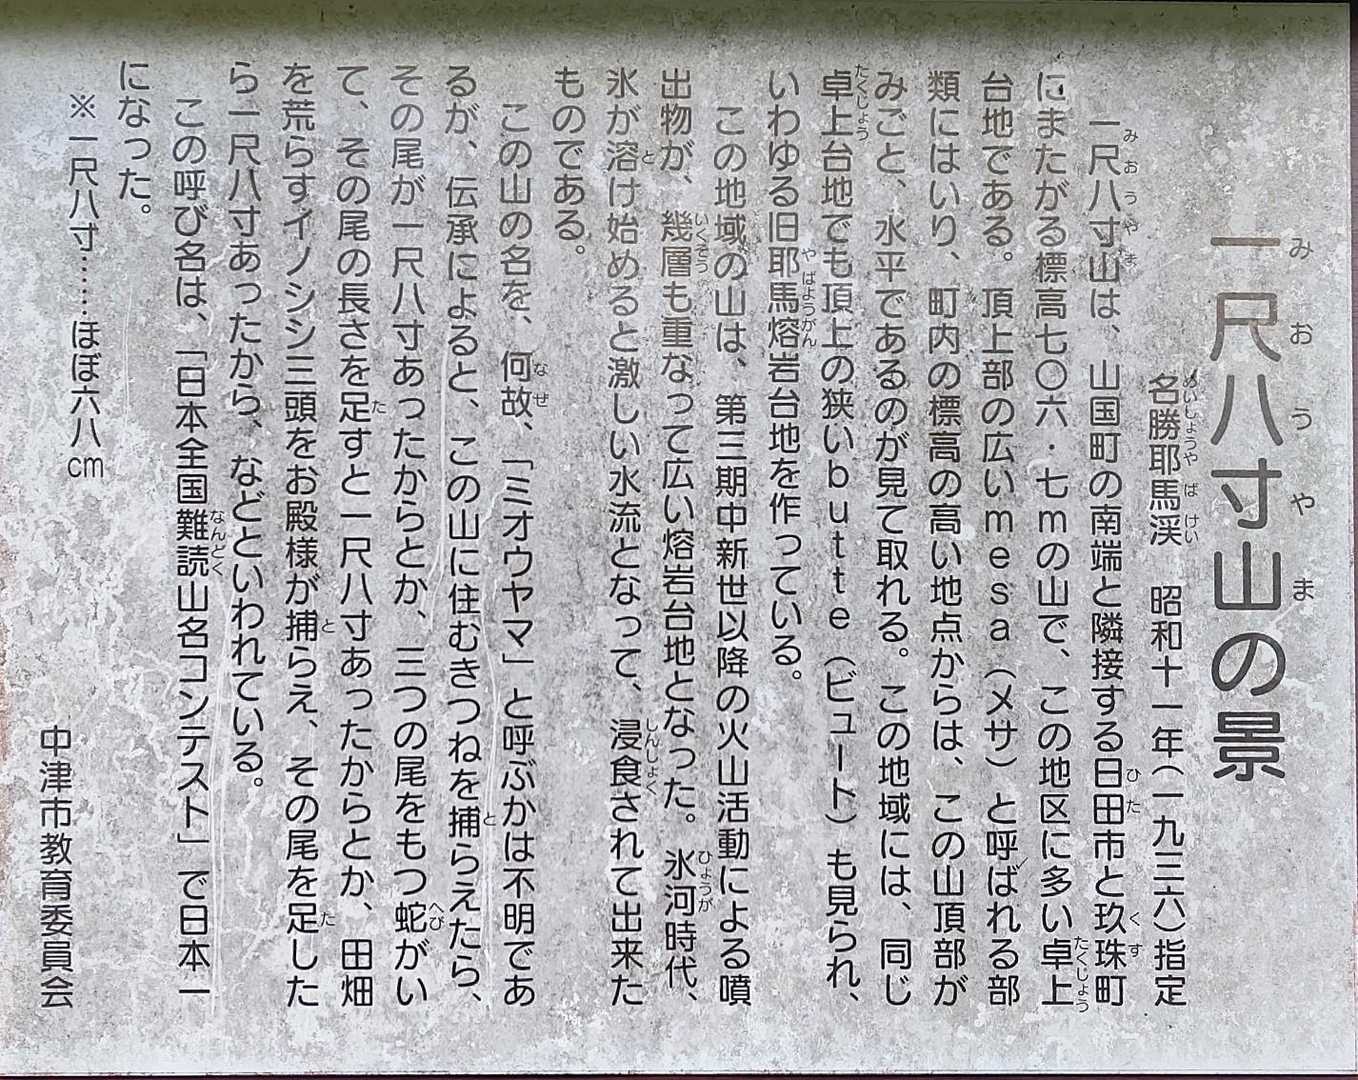 一尺八寸山の景
みおうやま
名勝耶馬渓 昭和十一年(一九三六)指定
めいしょうやばけい
一尺八寸山は、山国町の南端と隣接する日田市と玖珠町
みおうやま ひた くす
にまたがる標高七〇六・七mの山で、この地区に多い卓上
たくじょう
台地である。頂上部の広いmesa(メサ)と呼ばれる部
類にはいり、町内の標高の高い地点からは、この山頂部が
みごと、水平であるのが見て取れる。この地域には、同じ
卓上台地でも頂上の狭いbutte(ビュート)も見られ、
たくじょう
いわゆる旧耶馬熔岩台地を作っている。
やばようがん
この地域の山は、第三期中新世以降の火山活動による噴
出物が、幾層も重なって広い熔岩台地となった。氷河時代、
いくそう ひょうが
氷が溶け始めると激しい水流となって、浸食されて出来た
と しんしょく
ものである。
この山の名を、何故、「ミオウヤマ」と呼ぶかは不明であ
なぜ
るが、伝承によると、この山に住むきつねを捕らえたら、
と
その尾が一尺八寸あったからとか、三つの尾をもつ蛇がい
へび
て、その尾の長さを足すと一尺八寸あったからとか、田畑
た
を荒らすイノシシ三頭をお殿様が捕らえ、その尾を足した
と た
ら一尺八寸あったから、などといわれている。
この呼び名は、「日本全国難読山名コンテスト」で日本一
なんどく
になった。
※一尺八寸……ほぼ六八cm
中津市教育委員会